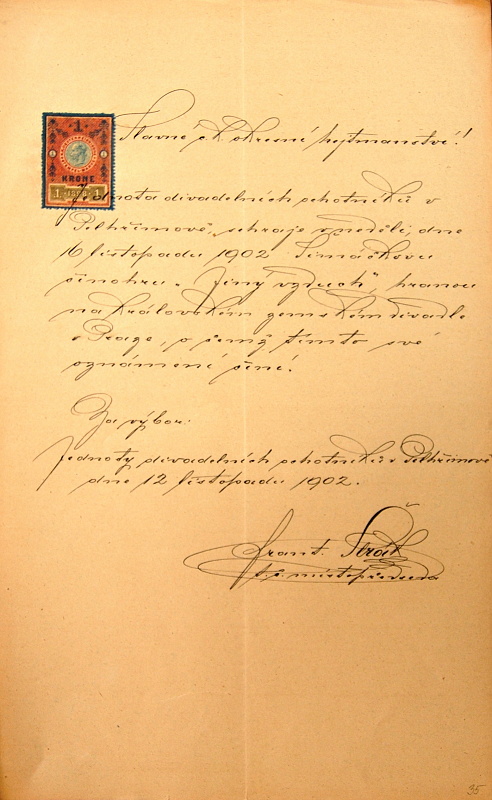 Slavné c. k. okresní hejtmanství!
1
KRONE
1 1898 1
Jednota divadelních ochotníků v
Pelhřimově, sehraje v neděli, dne
16 listopadu 1902 Šimáčkovu
činohru „Jiný vzduch“, hranou
na královském zemském divadle
v Praze, o čemž tímto své
oznámení činí.
Za výbor:
Jednoty divadelních ochotníků v Pelhřimově
dne 12 listopadu 1902.
Frant.
t. č. místopředseda
35